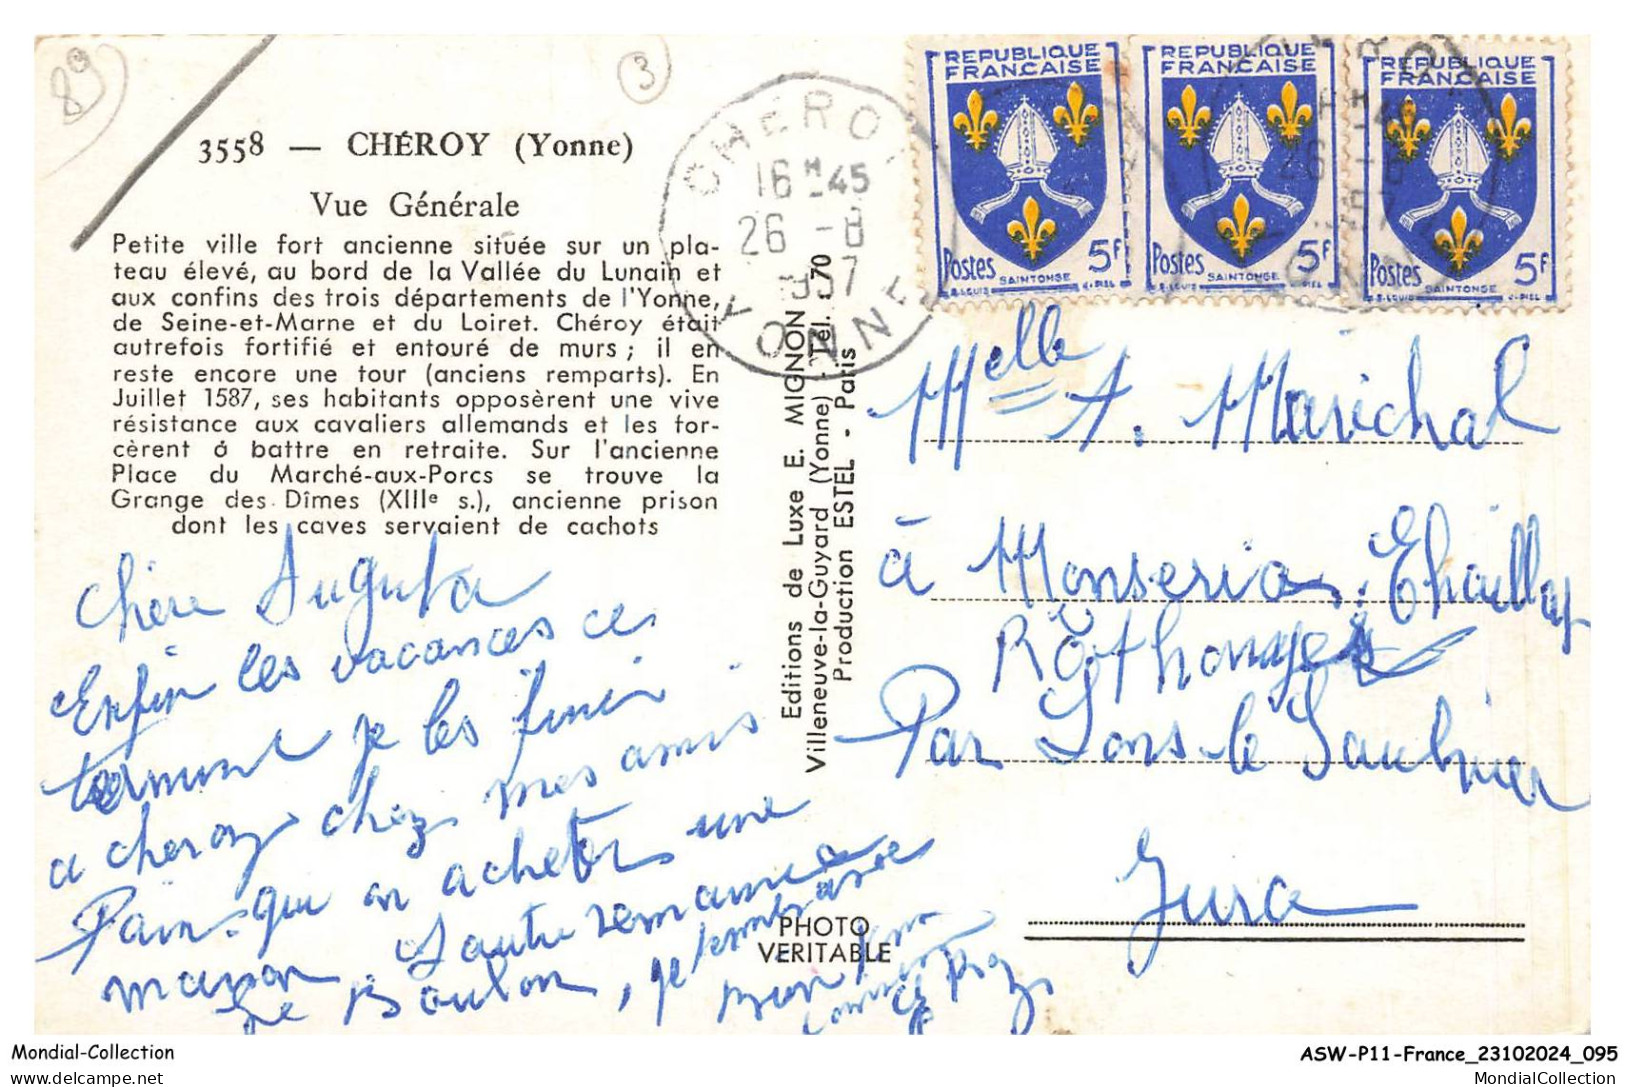 89
3
3558 — CHÉROY (Yonne)
Vue Générale
Petite ville fort ancienne située sur un pla-
teau élevé, au bord de la Vallée du Lunain et
aux confins des trois départements de l'Yonne,
de Seine-et-Marne et du Loiret. Chéroy était
autrefois fortifié et entouré de murs ; il en
reste encore une tour (anciens remparts). En
Juillet 1587, ses habitants opposèrent une vive
résistance aux cavaliers allemands et les for-
cèrent à battre en retraite. Sur l'ancienne
Place du Marché-aux-Porcs se trouve la
Grange des Dîmes (XIIIe s.), ancienne prison
dont les caves servaient de cachots
Chère Augusta
Enfin les vacances ce
terminent je les finir
a cheroy chez mes amis
Paris qui on acheter une
maison. L'autre semaine
Le Boulon, je
Editions de Luxe E. MIGNON
Villeneuve-la-Guyard (Yonne) Tél. 70
Production ESTEL - Paris
PHOTO
VERITABLE
CHEROY
16 H 45
26 -8
1957
YONNE
REPUBLIQUE
FRANCAISE
Postes SAINTONGE 5F
REPUBLIQUE
FRANCAISE
Postes SAINTONGE 5F
REPUBLIQUE
FRANCAISE
Postes SAINTONGE 5F
Melle A. Maréchal
à Monseria
Rothonay
Par Lons le Saulnier
Jura
Mondial-Collection
delcampe.net
ASW-P11-France_23102024_095
MondialCollection